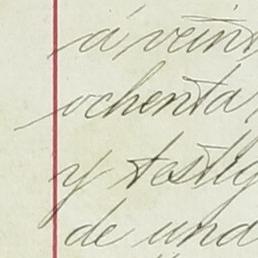 á veint
ochenta
y testig
de und